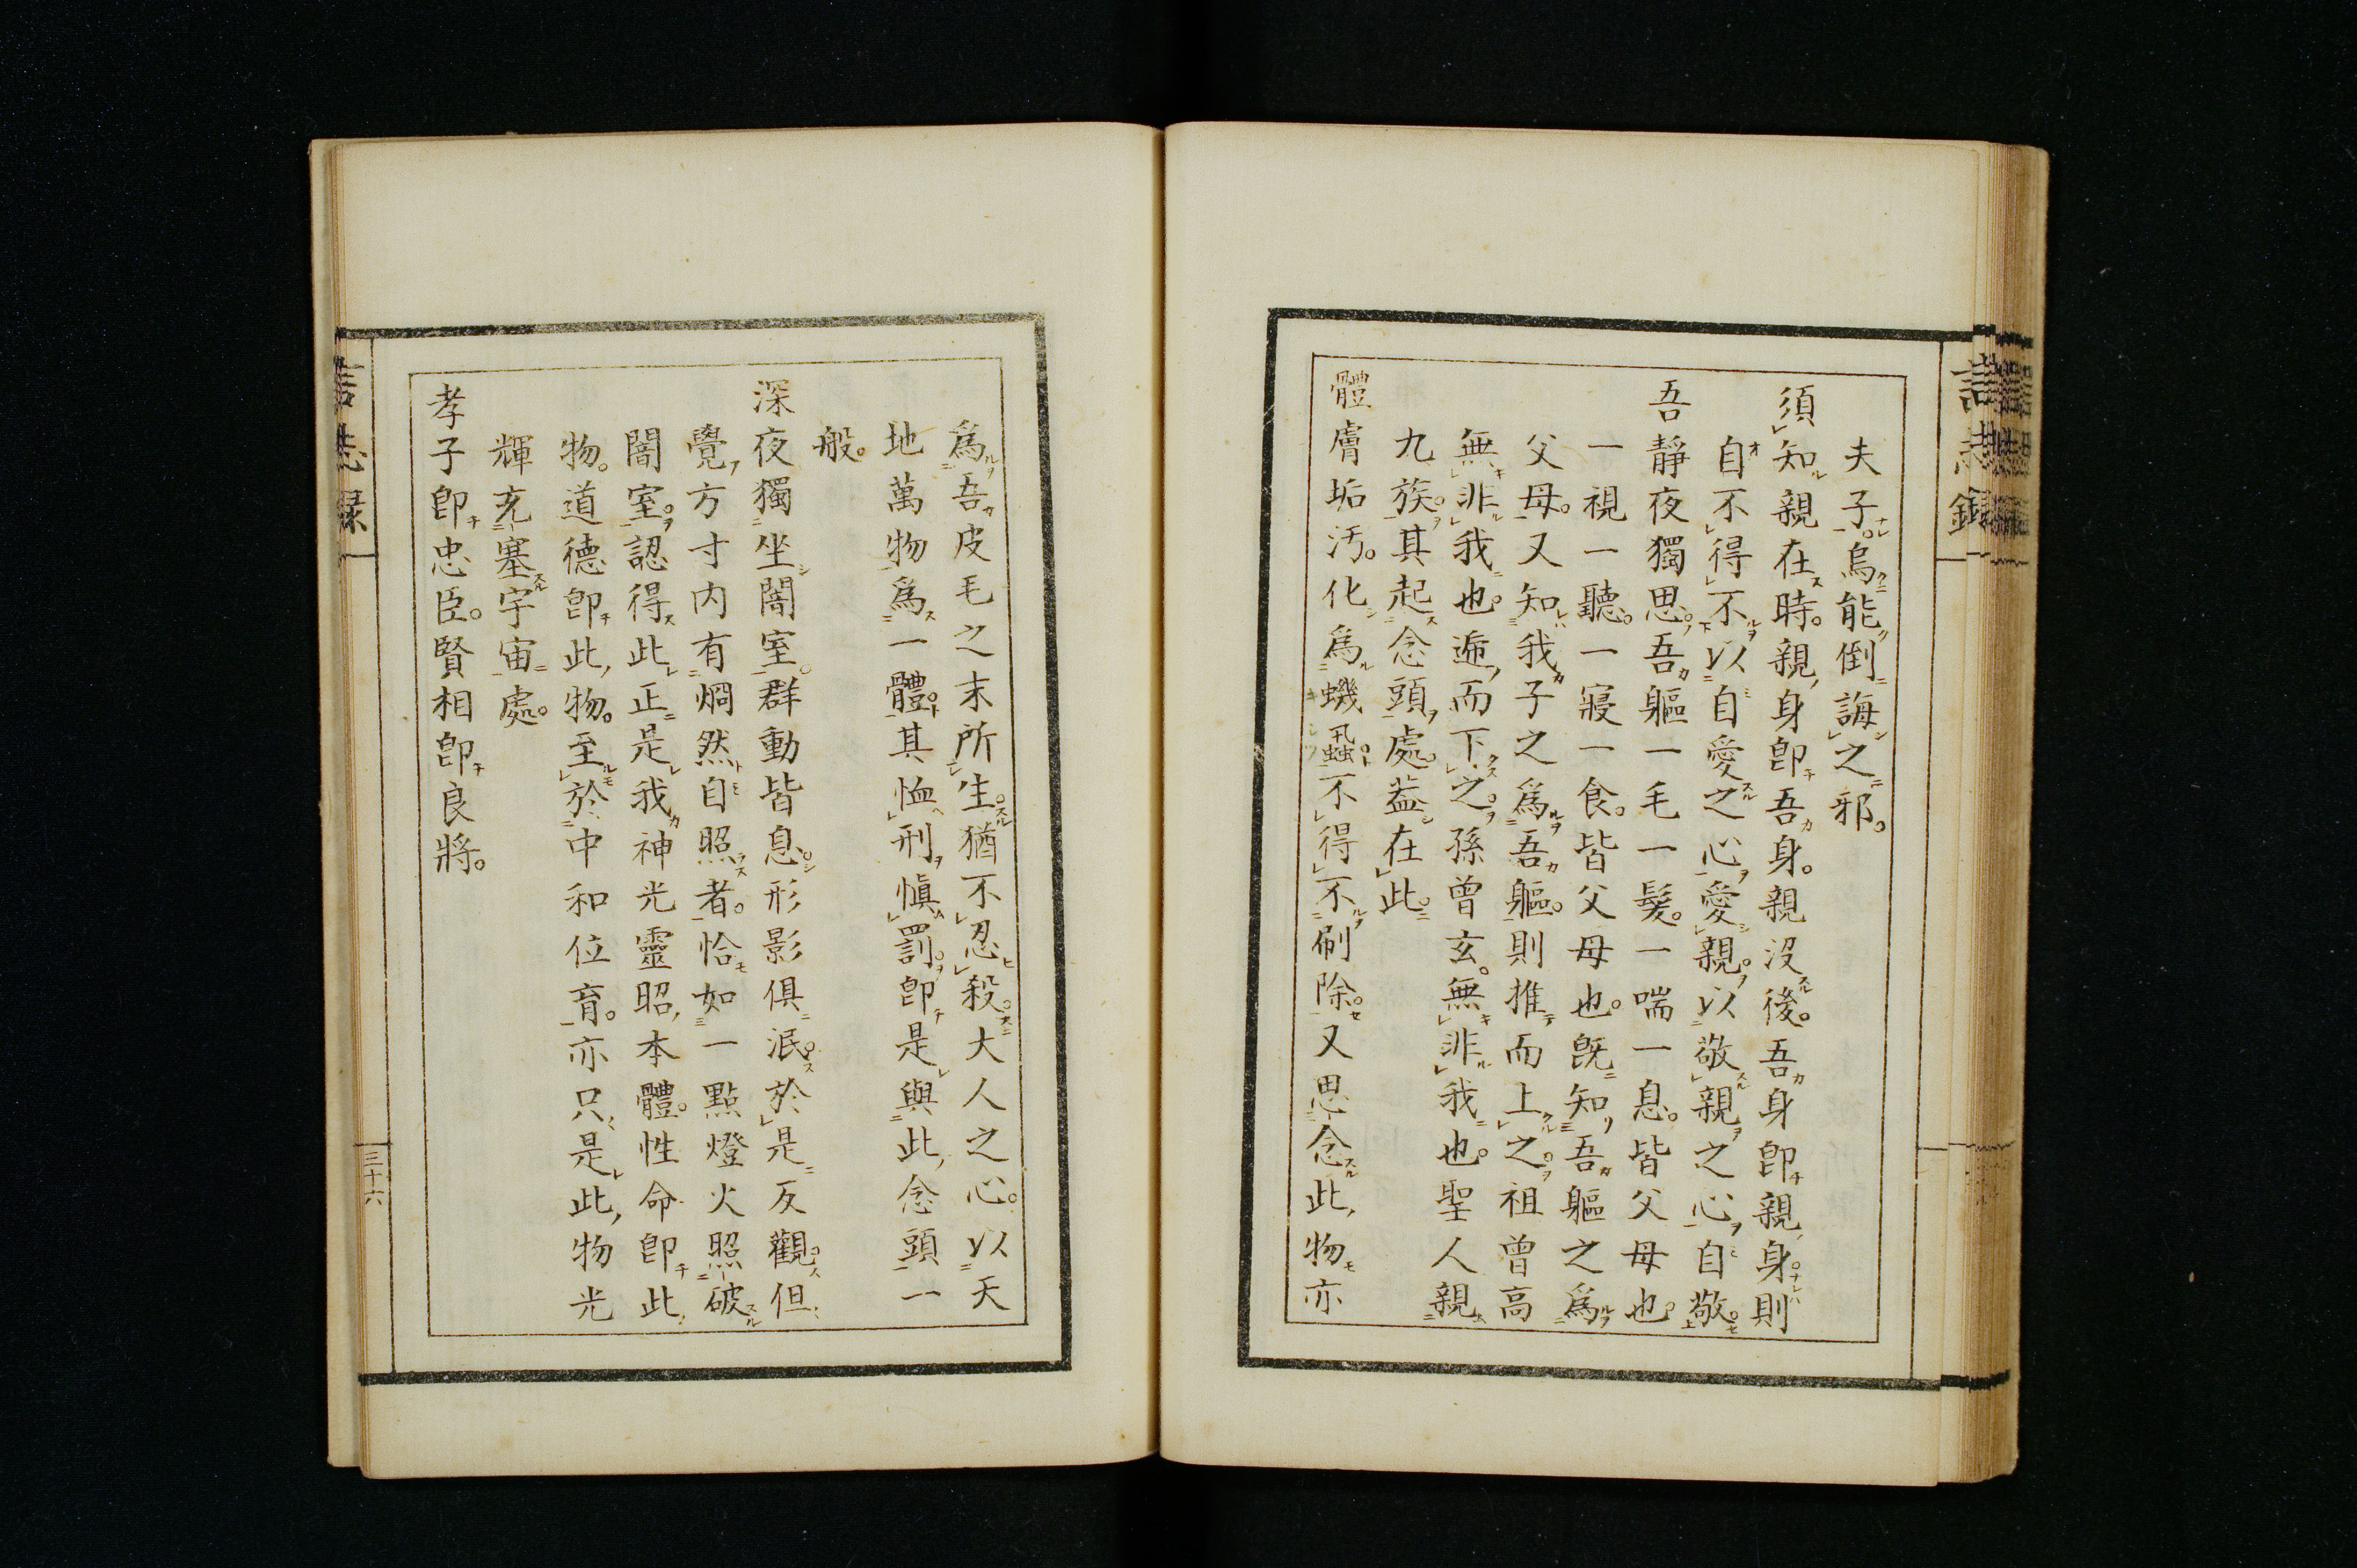 夫子。烏能倒誨之邪。
須知親在時。親身卽吾身。親沒後。吾身卽親身則
自不得不以自愛之心愛親。以敬親之心自敬。
吾靜夜獨思。吾軀一毛一髮。一喘一息。皆父母也。
一視一聽。一寢一食。皆父母也。旣知吾軀之爲
父母。又知我子之爲吾軀。則推而上之。祖曾高
無非我也。遞而下之。孫曾玄。無非我也。聖人親
九族。其起念頭處。葢在此。
體膚垢汚。化爲蟣蝨。不得不刷除。又思念此物亦
爲吾皮毛之末所生。猶不忍殺。大人之心。以天
地萬物爲一體。其恤刑愼罰。卽是與此念頭一
般。
深夜獨坐闇室。群動皆息。形影俱泯。於是反觀。但
覺方寸內有烱然自照者。恰如一點燈火照破
闇室。認得此正是我神光靈昭本體。性命卽此
物。道德卽此物。至於中和位育。亦只是此物光
輝充塞宇宙處。
孝子卽忠臣。賢相卽良將。
言志錄
三十六